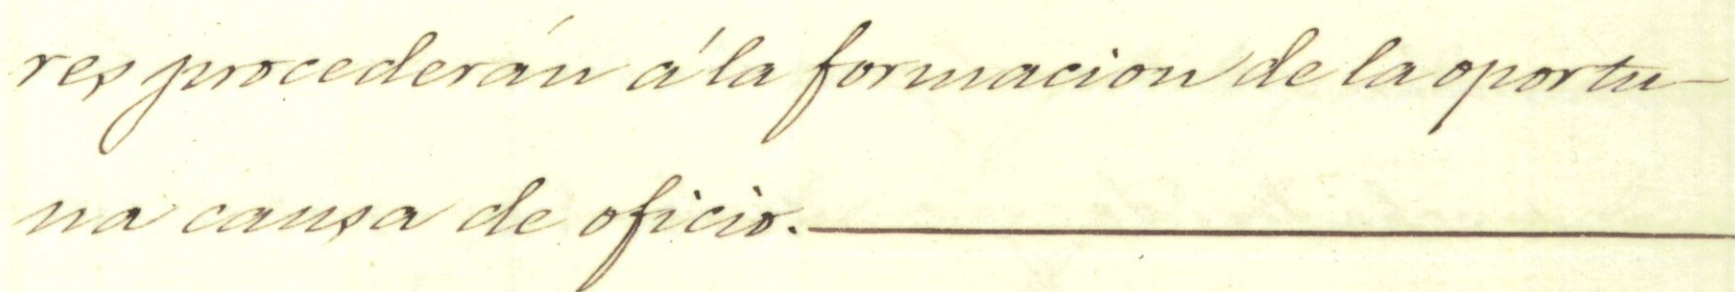 res procederán á la formacion de la oportu-
na causa de oficio.